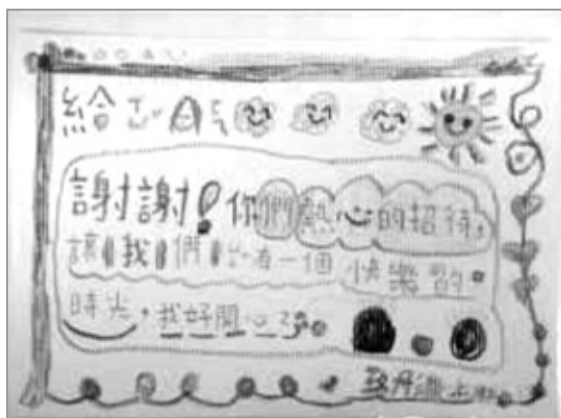 給
謝謝！你們熱心的招待，
讓我們有一個快樂的
時光，我好開心
上